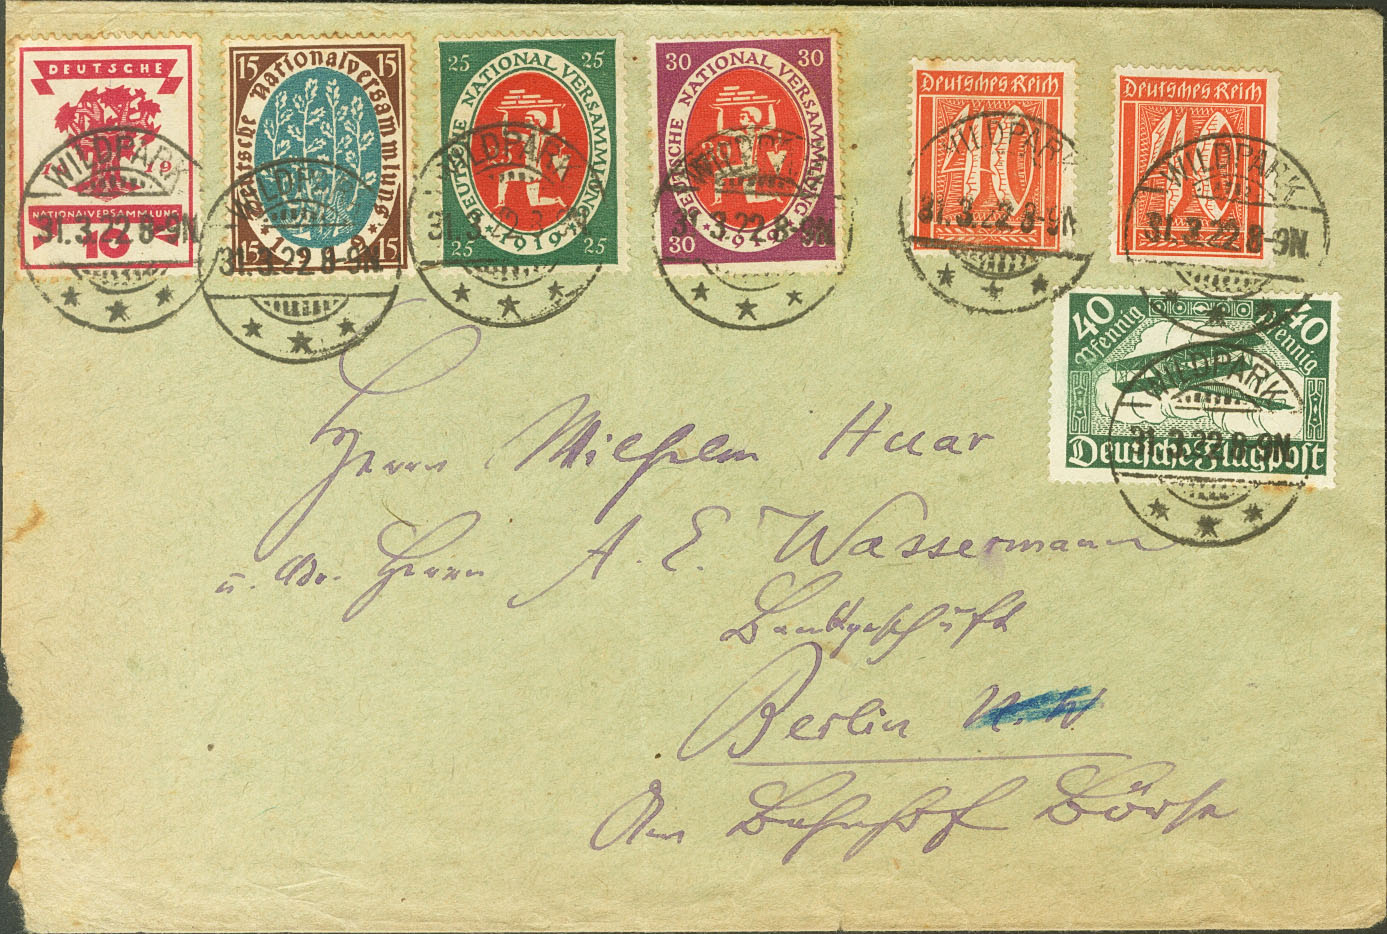 DEUTSCHE
1919
NATIONALVERSAMMLUNG
10
15 15
Deutsche Nationalversammlung
1919
15 15
25 25
DEUTSCHE NATIONALVERSAMMLUNG
1919
25 25
30 30
DEUTSCHE NATIONALVERSAMMLUNG
1919
30
Deutsches Reich
40
Deutsches Reich
40
WILDPARK
31.3.22 8-9N.
WILDPARK
31.3.22 8-9N.
WILDPARK
31.3.22 8-9N.
WILDPARK
31.3.22 8-9N.
WILDPARK
31.3.22 8-9N.
WILDPARK
31.3.22 8-9N.
40 Pfennig 40 Pfennig
Deutsche Flugpost
WILDPARK
31.3.22 8-9N.
Herrn Wilhelm Haar
u. Herrn A. E. Wassermann
Bankgeschäft
Berlin N.W
Am Bahnhof Börse